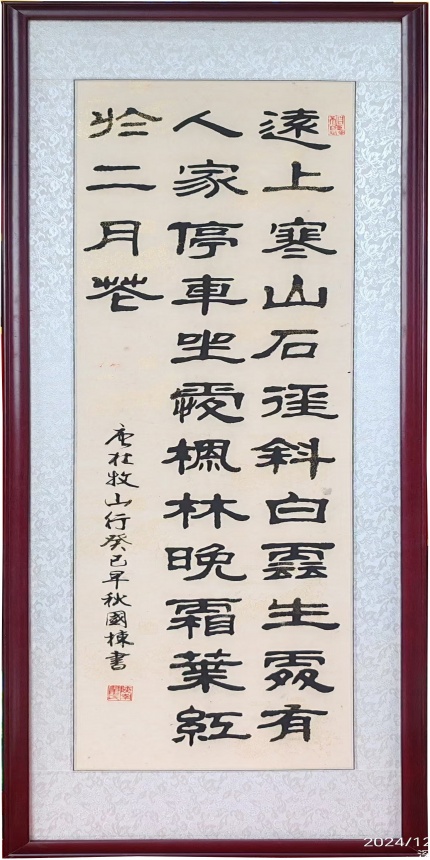 遠上寒山石徑斜白雲生處有
人家停車坐愛楓林晚霜葉紅
於二月花
唐杜牧山行癸巳早秋國棟書
2024/12